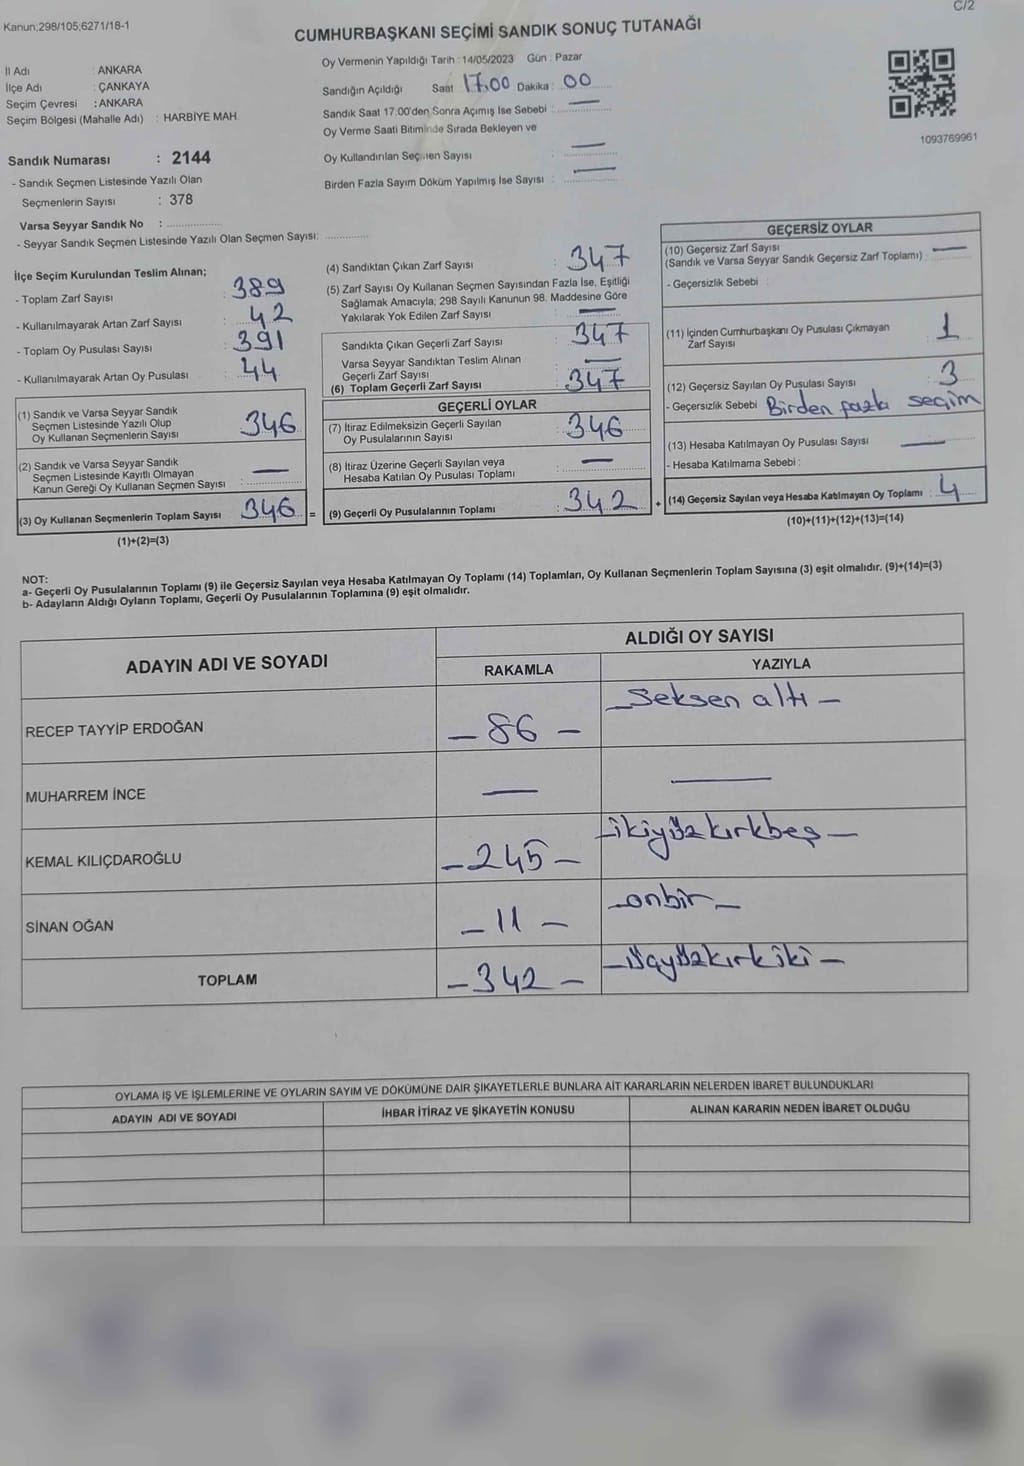 C/2
Kanun;298/105;6271/18-1
CUMHURBAŞKANI SEÇİMİ SANDIK SONUÇ TUTANAĞI
İl Adı : ANKARA
İlçe Adı : ÇANKAYA
Seçim Çevresi : ANKARA
Seçim Bölgesi (Mahalle Adı) : HARBİYE MAH.
Sandık Numarası : 2144
- Sandık Seçmen Listesinde Yazılı Olan
Seçmenlerin Sayısı : 378
Varsa Seyyar Sandık No :
- Seyyar Sandık Seçmen Listesinde Yazılı Olan Seçmen Sayısı:
Oy Vermenin Yapıldığı Tarih : 14/05/2023 Gün : Pazar
Sandığın Açıldığı Saat : 17.00 Dakika : 00
Sandık Saat 17:00'den Sonra Açımış İse Sebebi : —
Oy Verme Saati Bitiminde Sırada Bekleyen ve
Oy Kullandırılan Seçmen Sayısı : —
Birden Fazla Sayım Döküm Yapılmış İse Sayısı : —
1093769961
İlçe Seçim Kurulundan Teslim Alınan;
- Toplam Zarf Sayısı : 389
- Kullanılmayarak Artan Zarf Sayısı : 42
- Toplam Oy Pusulası Sayısı : 391
- Kullanılmayarak Artan Oy Pusulası : 44
(1) Sandık ve Varsa Seyyar Sandık
Seçmen Listesinde Yazılı Olup
Oy Kullanan Seçmenlerin Sayısı 346
(2) Sandık ve Varsa Seyyar Sandık
Seçmen Listesinde Kayıtlı Olmayan
Kanun Gereği Oy Kullanan Seçmen Sayısı : —
(3) Oy Kullanan Seçmenlerin Toplam Sayısı 346 =
(1)+(2)=(3)
(4) Sandıktan Çıkan Zarf Sayısı : 347
(5) Zarf Sayısı Oy Kullanan Seçmen Sayısından Fazla İse, Eşitliği
Sağlamak Amacıyla; 298 Sayılı Kanunun 98. Maddesine Göre
Yakılarak Yok Edilen Zarf Sayısı : —
Sandıkta Çıkan Geçerli Zarf Sayısı : 347
Varsa Seyyar Sandıktan Teslim Alınan
Geçerli Zarf Sayısı : —
(6) Toplam Geçerli Zarf Sayısı : 347
GEÇERLİ OYLAR
(7) İtiraz Edilmeksizin Geçerli Sayılan
Oy Pusulalarının Sayısı : 346
(8) İtiraz Üzerine Geçerli Sayılan veya
Hesaba Katılan Oy Pusulası Toplamı : —
(9) Geçerli Oy Pusulalarının Toplamı : 342 +
GEÇERSİZ OYLAR
(10) Geçersiz Zarf Sayısı
(Sandık ve Varsa Seyyar Sandık Geçersiz Zarf Toplamı) : —
- Geçersizlik Sebebi :
(11) İçinden Cumhurbaşkanı Oy Pusulası Çıkmayan
Zarf Sayısı : 1
(12) Geçersiz Sayılan Oy Pusulası Sayısı : 3
- Geçersizlik Sebebi : Birden fazla seçim
(13) Hesaba Katılmayan Oy Pusulası Sayısı : —
- Hesaba Katılmama Sebebi :
(14) Geçersiz Sayılan veya Hesaba Katılmayan Oy Toplamı : 4
(10)+(11)+(12)+(13)=(14)
NOT:
a- Geçerli Oy Pusulalarının Toplamı (9) ile Geçersiz Sayılan veya Hesaba Katılmayan Oy Toplamı (14) Toplamları, Oy Kullanan Seçmenlerin Toplam Sayısına (3) eşit olmalıdır. (9)+(14)=(3)
b- Adayların Aldığı Oyların Toplamı, Geçerli Oy Pusulalarının Toplamına (9) eşit olmalıdır.
ADAYIN ADI VE SOYADI
ALDIĞI OY SAYISI
RAKAMLA YAZIYLA
RECEP TAYYİP ERDOĞAN — 86 — — seksen altı —
MUHARREM İNCE — —
KEMAL KILIÇDAROĞLU — 245 — — ikiyüzkırkbeş —
SİNAN OĞAN — 11 — — onbir —
TOPLAM — 342 — — üçyüzkırkiki —
OYLAMA İŞ VE İŞLEMLERİNE VE OYLARIN SAYIM VE DÖKÜMÜNE DAİR ŞİKAYETLERLE BUNLARA AİT KARARLARIN NELERDEN İBARET BULUNDUKLARI
ADAYIN ADI VE SOYADI İHBAR İTİRAZ VE ŞİKAYETİN KONUSU ALINAN KARARIN NEDEN İBARET OLDUĞU